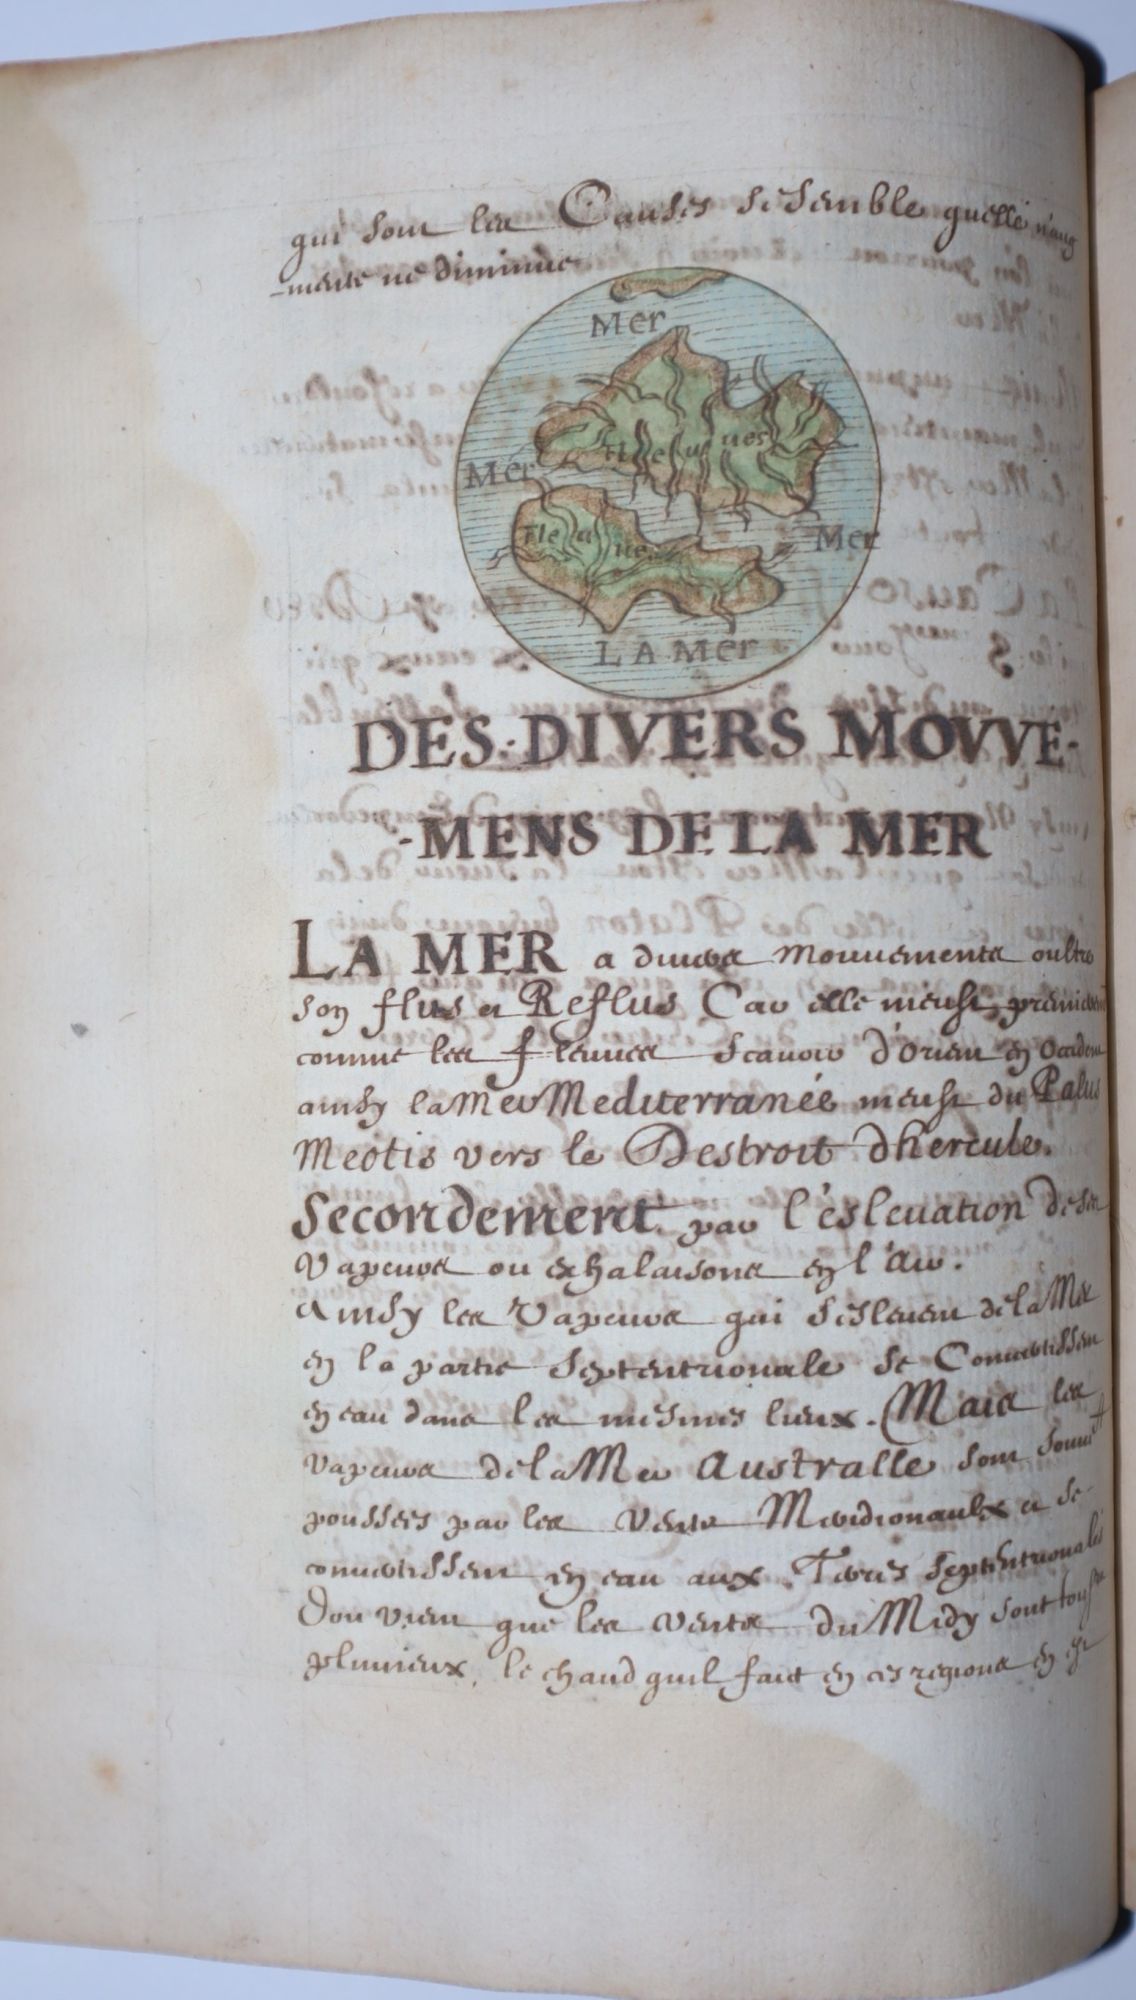 qui sont les Causes se semble quelle n'aug
-mente ne diminue
Mer
Fleuues
Mer
Fleuue
Mer
LA Mer
DES·DIVERS MOVVE-
-MENS DE LA MER
LA MER a diuers Mouuements oultre
son flus et Reflus Car elle meust premierem
comme les fleuues Scauoir d'Orient en Occident
ainsy la Mer Mediterranée meust du Palus
Meotis vers le Destroit dhercule.
Secondement par l'ésleuation de ses
Vapeurs ou exhalaisons en l'air.
Ainsy les Vapeurs qui sesleuent de la Mer
en la partie Septentrionale se Conuertissent
en eau dans les mesmes lieux. Mais les
vapeurs de la Mer Australle sont souuent
poussées par les vents Meridionaulx et se
conuertissent en eau aux Terres Septentrionales
Dou vient que les vents du Midy sont
pluuieux, le chaud quil faict en ces regions en